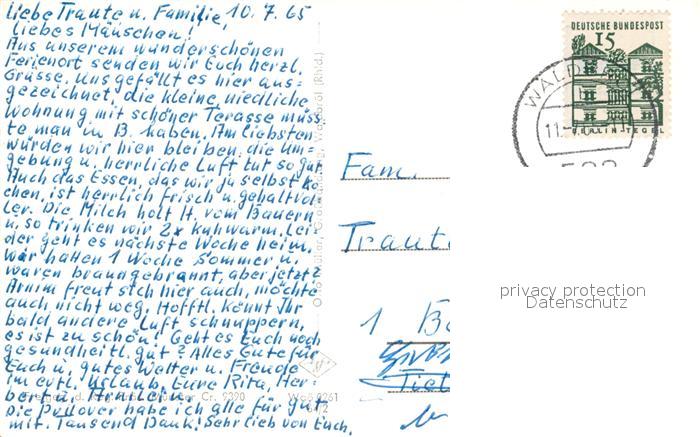 Liebe Traute u. Familie, 10.7.65
liebes Mäuschen!
Aus unserem wunderschönen
Ferienort senden wir Euch herzl.
Grüsse. Uns gefällt es hier aus-
gezeichnet, die kleine, niedliche
Wohnung mit schöner Terasse müss-
te man in B. haben. Am liebsten
würden wir hier bleiben, die Um-
gebung u. herrliche Luft tut so gut.
Auch das Essen, das wir ja selbst ko-
chen, ist herrlich frisch u. gehaltvol-
ler. Die Milch holt H. vom Bauern
u. so trinken wir 2x kuhwarm. Lei-
der geht es nächste Woche heim.
Wir hatten 1 Woche Sommer u.
waren braungebrannt, aber jetzt?
Arnim freut sich hier auch, möchte
auch nicht weg. Hofftl. könnt Ihr
bald andere Luft schnuppern,
es ist zu schön! Geht es Euch noch
gesundheitl. gut? Alles Gute für
Euch u. gutes Wetter u. Freude
im evtl. Urlaub. Eure Rita, Her-
bert u. Arnilein.
Die Pullover habe ich alle für gut
mit. Tausend Dank! Sehr lieb von Euch.
Cr. 9390
DEUTSCHE BUNDESPOST
15
BERLIN-TEGEL
WALD
11.
Fam.
Traute
1 B
privacy protection
Datenschutz